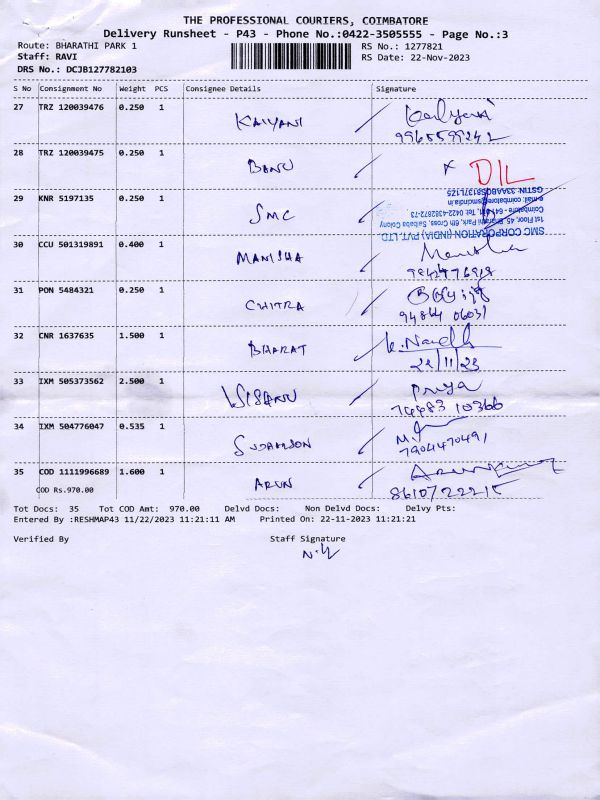 THE PROFESSIONAL COURIERS, COIMBATORE
Delivery Runsheet - P43 - Phone No.:0422-3505555 - Page No.:3
Route: BHARATHI PARK 1
RS No.: 1277821
Staff: RAVI
RS Date: 22-Nov-2023
DRS No.: DCJB127782103
S No Consignment No Weight PCS Consignee Details Signature
27 TRZ 120039476 0.250 1 KALYANI Kalyani
9965599242
28 TRZ 120039475 0.250 1 BANU x DIL
29 KNR 5197135 0.250 1 SMC
SMC CORPORATION (INDIA) PVT. LTD
1st Floor, 45, Bharathi Park, 6th Cross, Saibaba Colony
Coimbatore - 641 011, Tel: 0422-4382872-73
30 CCU 501319891 0.400 1 MANISHA
31 PON 5484321 0.250 1 CHITRA
94864 06031
32 CNR 1637635 1.500 1 BHARAT
22/11/23
33 IXM 505373562 2.500 1 Priya
74483 10366
34 IXM 504776047 0.535 1
7904470491
35 COD 1111996689 1.600 1 ARUN
COD Rs.970.00
8610722215
Tot Docs: 35 Tot COD Amt: 970.00 Delvd Docs: Non Delvd Docs: Delvy Pts:
Entered By :RESHMAP43 11/22/2023 11:21:11 AM Printed On: 22-11-2023 11:21:21
Verified By Staff Signature